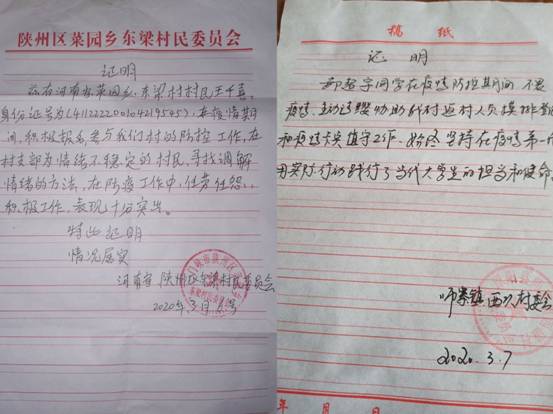 陕州区菜园乡东梁村民委员会
证明
兹有河南省菜园乡东梁村村民王千喜,
身份证号为(411222200104219505),在疫情期
间,积极报名参与我们村的防控工作,在
村支部为情绪不稳定的村民,寻找调解
情绪的方法,在防疫工作中,任劳任怨,
积极工作,表现十分突出。
特此证明
情况属实
河南省 陕州区东梁村民委员会
2020年3月
稿 纸
证 明
同学在疫情防控期间 不畏
疫情,主动请缨协助我村返村人员摸排
和疫情卡点值守工作,始终坚持在疫情第一
用实际行动践行了当代大学生的担当和使命
师寨镇 村委会
2020.3.7
年 月 日